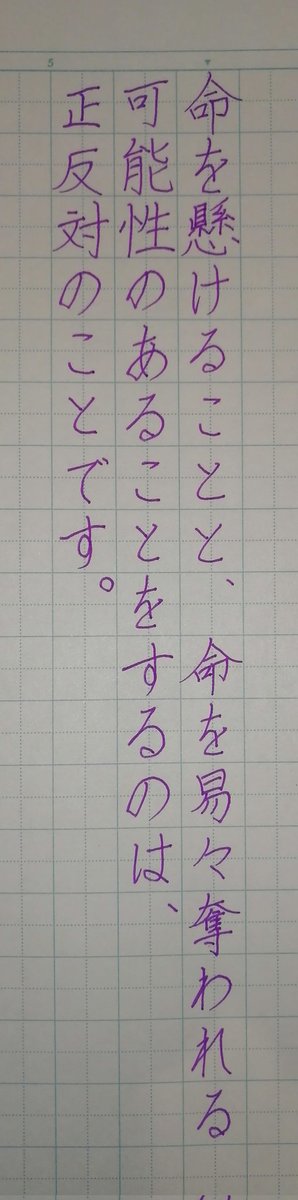 命を懸けることと、命を易々奪われる
可能性のあることをするのは、
正反対のことです。
5